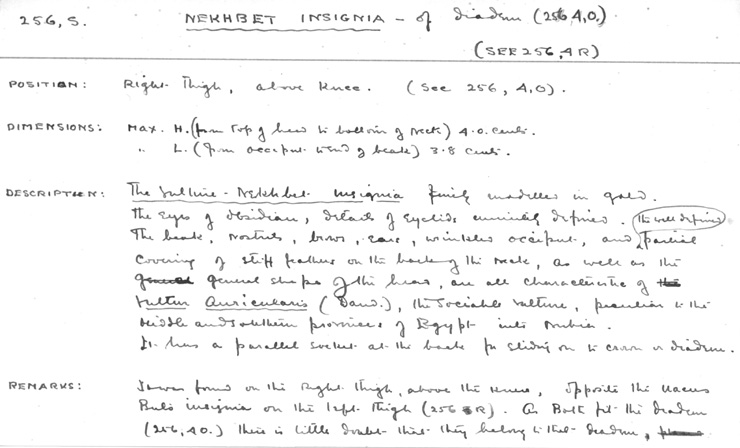 256, S. NEKHBET INSIGNIA – of diadem (256 4, O.)
(SEE 256, 4 R)
POSITION: Right Thigh, above Knee. (See 256, 4, O).
DIMENSIONS: Max. H. (from top of head to bottom of neck) 4.0. cents.
" L. (from occiput to end of beak) 3.8 cents.
DESCRIPTION: The Vulture-Nekhbet insignia finely modelled in gold.
The eyes of obsidian, details of eyelids minutely defined. The well defined
The beak, nostrils, brows, ears, wrinkled occiput, and partial
covering of stiff feathers on the back of the neck, as well as the
general general shape of the head, are all characteristic of the
Vultur Auricularis (Daud.), the Sociable Vulture, peculiar to the
middle and southern provinces of Egypt into Nubia.
It has a parallel socket at the back for sliding on to crown or diadem.
REMARKS: It was found on the Right Thigh, above the knee, opposite the Uaeus
insignia on the left thigh (256 R). As Both fit the diadem
(256, 4 O.) there is little doubt that they belong to that diadem,